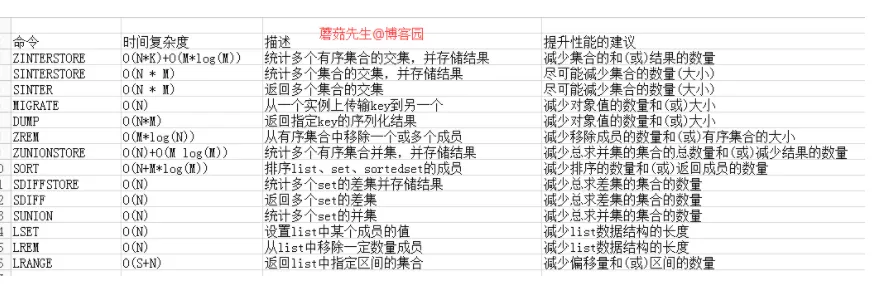 蘑菇先生@博客园
命令 时间复杂度 描述 提升性能的建议
ZINTERSTORE O(N*K)+O(M*log(M)) 统计多个有序集合的交集，并存储结果 减少集合的和(或)结果的数量
SINTERSTORE O(N * M) 统计多个集合的交集，并存储结果 尽可能减少集合的数量(大小)
SINTER O(N * M) 返回多个集合的交集 尽可能减少集合的数量(大小)
MIGRATE O(N) 从一个实例上传输key到另一个 减少对象值的数量和(或)大小
DUMP O(N*M) 返回指定key的序列化结果 减少对象值的数量和(或)大小
ZREM O(M*log(N)) 从有序集合中移除一个或多个成员 减少移除成员的数量和(或)有序集合的大小
ZUNIONSTORE O(N)+O(M log(M)) 统计多个有序集合并集，并存储结果 减少总求并集的集合的总数量和(或)减少结果的数量
0 SORT O(N+M*log(M)) 排序list、set、sortedset的成员 减少排序的数量和(或)返回成员的数量
1 SDIFFSTORE O(N) 统计多个set的差集并存储结果 减少总求差集的集合的数量
2 SDIFF O(N) 返回多个set的差集 减少总求差集的集合的数量
3 SUNION O(N) 统计多个set的并集 减少总求并集的集合的数量
4 LSET O(N) 设置list中某个成员的值 减少list数据结构的长度
5 LREM O(N) 从list中移除一定数量成员 减少list数据结构的长度
6 LRANGE O(S+N) 返回list中指定区间的集合 减少偏移量和(或)区间的数量